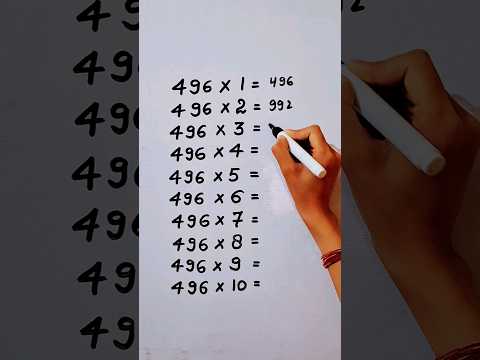 496 × 1 = 496
496 × 2 = 992
496 × 3 =
496 × 4 =
496 × 5 =
496 × 6 =
496 × 7 =
496 × 8 =
496 × 9 =
496 × 10 =